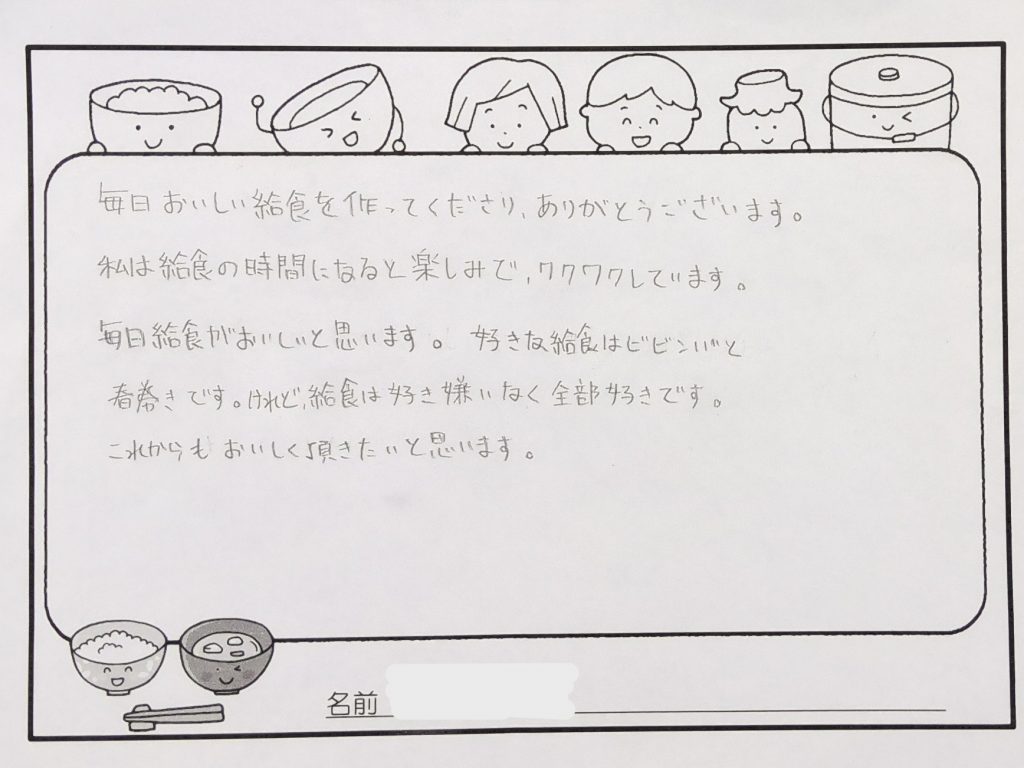 毎日おいしい給食を作ってくださり、ありがとうございます。
私は給食の時間になると楽しみで、ワクワクしています。
毎日給食がおいしいと思います。好きな給食はビビンバと
春巻きです。けれど、給食は好き嫌いなく全部好きです。
これからもおいしく頂きたいと思います。
名前